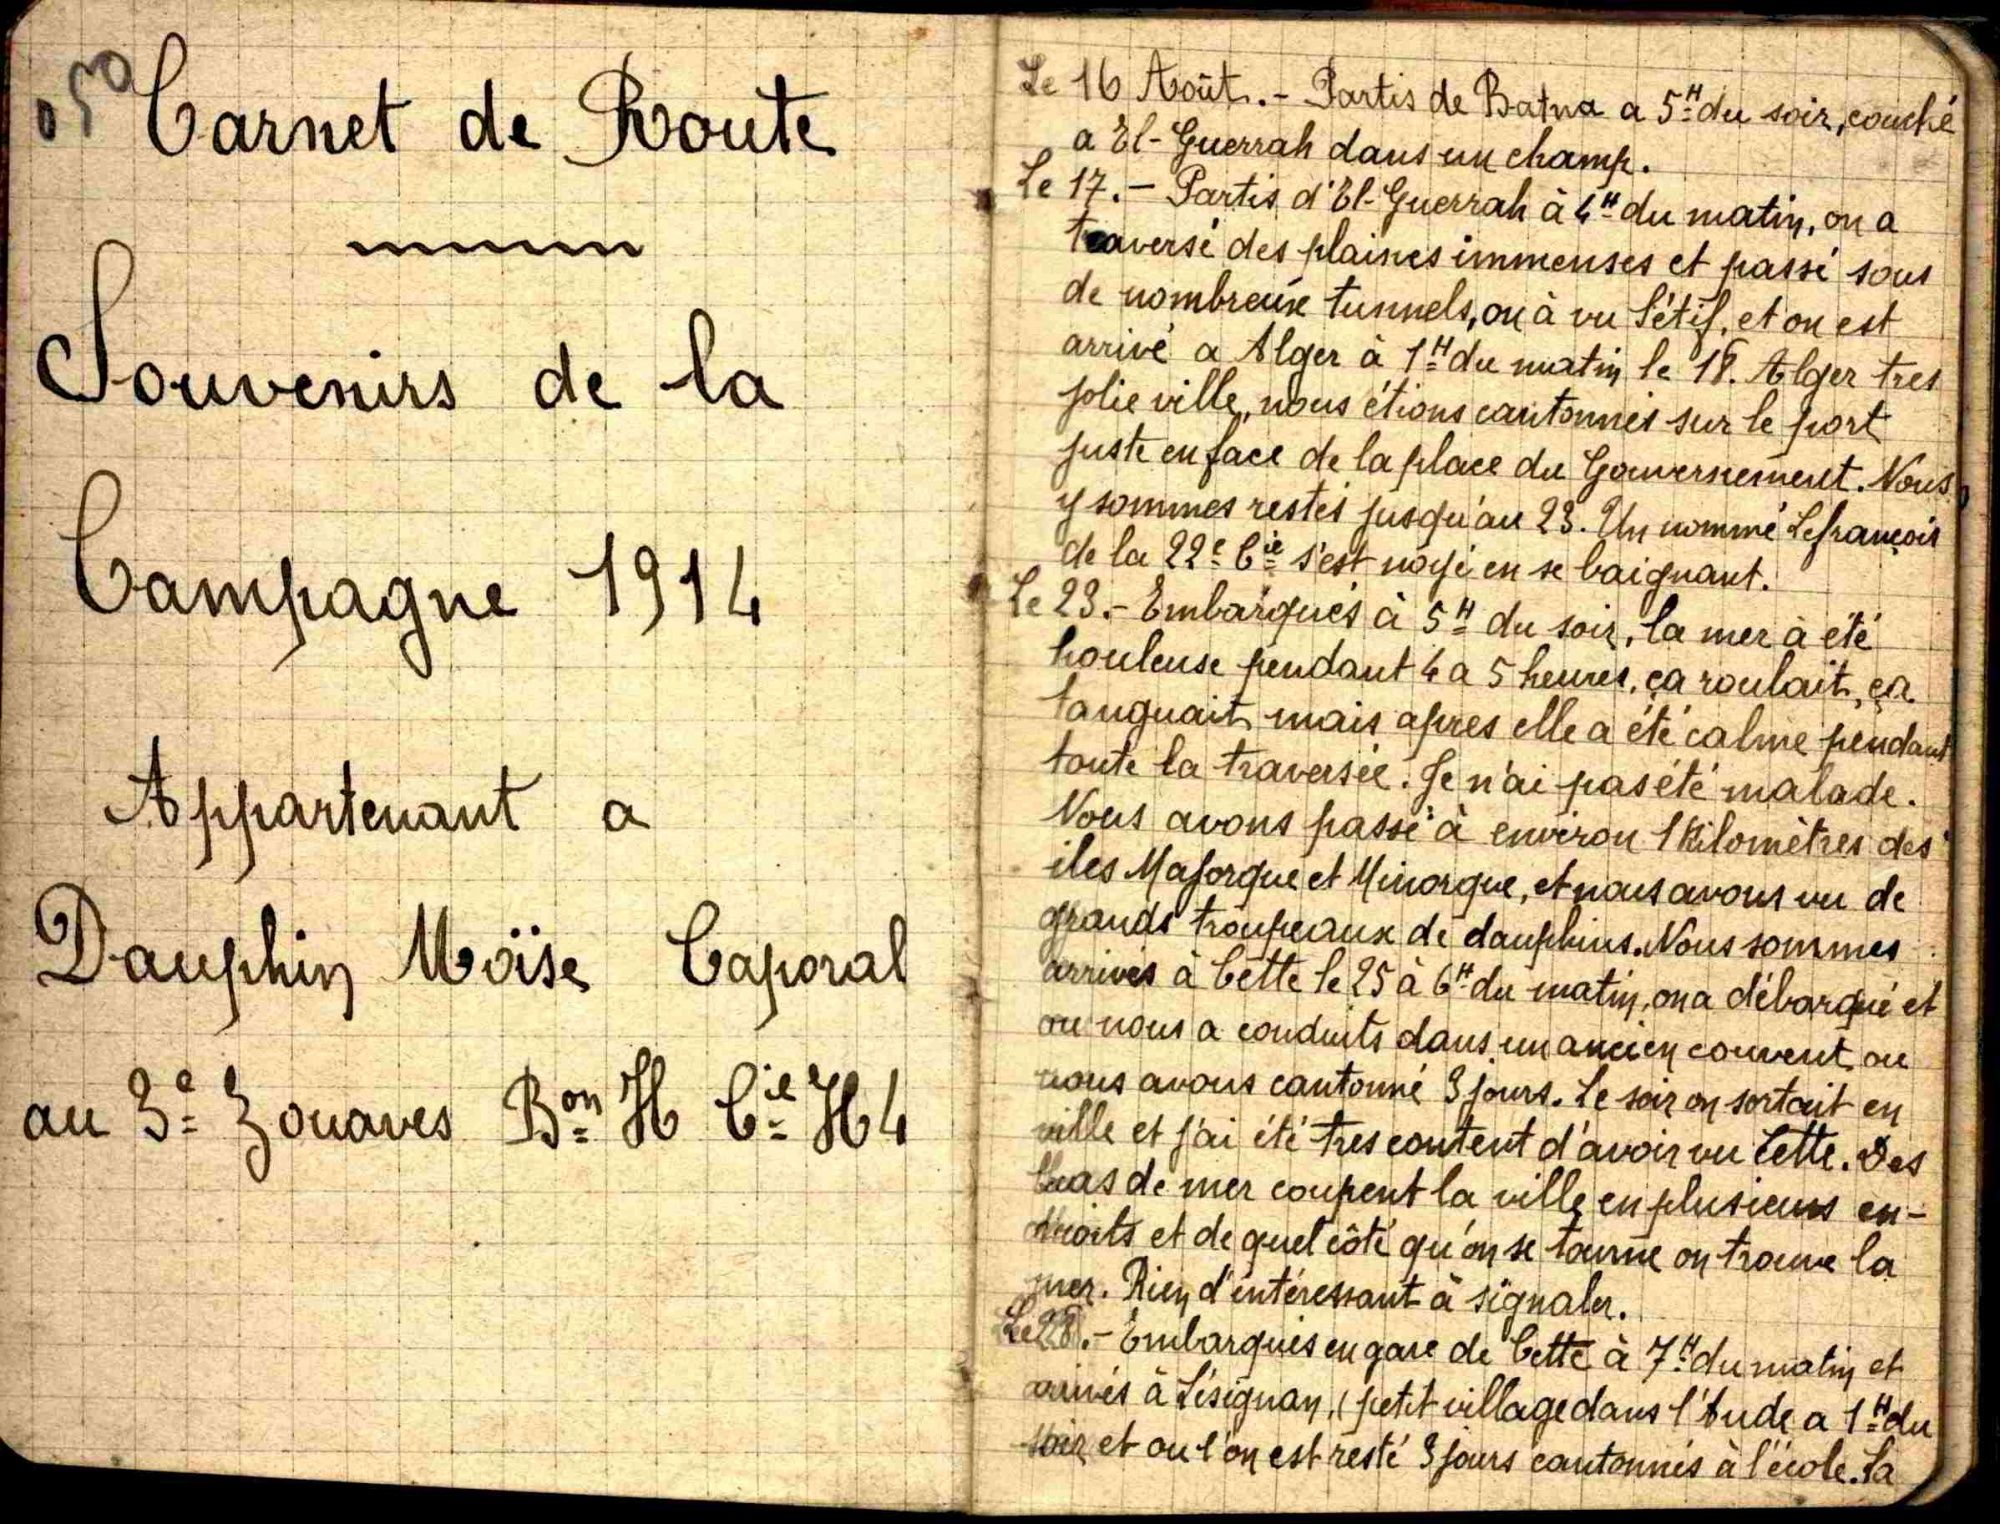 050
Carnet de Route
Souvenirs de la
Campagne 1914
Appartenant a
Dauphin Moïse Caporal
au 3e Zouaves Bon H Cie H4
Le 16 Août. - Partis de Batna a 5H du soir, couché
a El-Guerrah dans un champ.
Le 17. - Partis d'El-Guerrah à 4H du matin, on a
traversé des plaines immenses et passé sous
de nombreux tunnels, on à vu Sétif, et on est
arrivé a Alger à 1H du matin le 18. Alger tres
jolie ville, nous étions cantonnés sur le port
juste en face de la place du Gouvernement. Nous
y sommes restés jusqu'au 23. Un nommé Lefrançois
de la 22e Cie s'est noyé en se baignant.
Le 23. - Embarqués à 5H du soir, la mer à été
houleuse pendant 4 a 5 heures, ça roulait, ça
tanguait mais apres elle a été calme pendant
toute la traversée. Je n'ai pas été malade.
Nous avons passé à environ 1 Kilomètres des
iles Majorque et Minorque, et nous avons vu de
grands troupeaux de dauphins. Nous sommes
arrivés à Cette le 25 à 6H du matin, on a débarqué et
on nous a conduits dans un ancien couvent ou
nous avons cantonné 3 jours. Le soir on sortait en
ville et j'ai été tres content d'avoir vu Cette. Des
bras de mer coupent la ville en plusieurs en-
droits et de quel côté qu'on se tourne on trouve la
mer. Rien d'intéressant à signaler.
Le 28. - Embarqués en gare de Cette à 7H du matin et
arrivés à Lésignan, (petit village dans l'Aude a 1H du
soir et ou l'on est resté 3 jours cantonnés à l'école. La